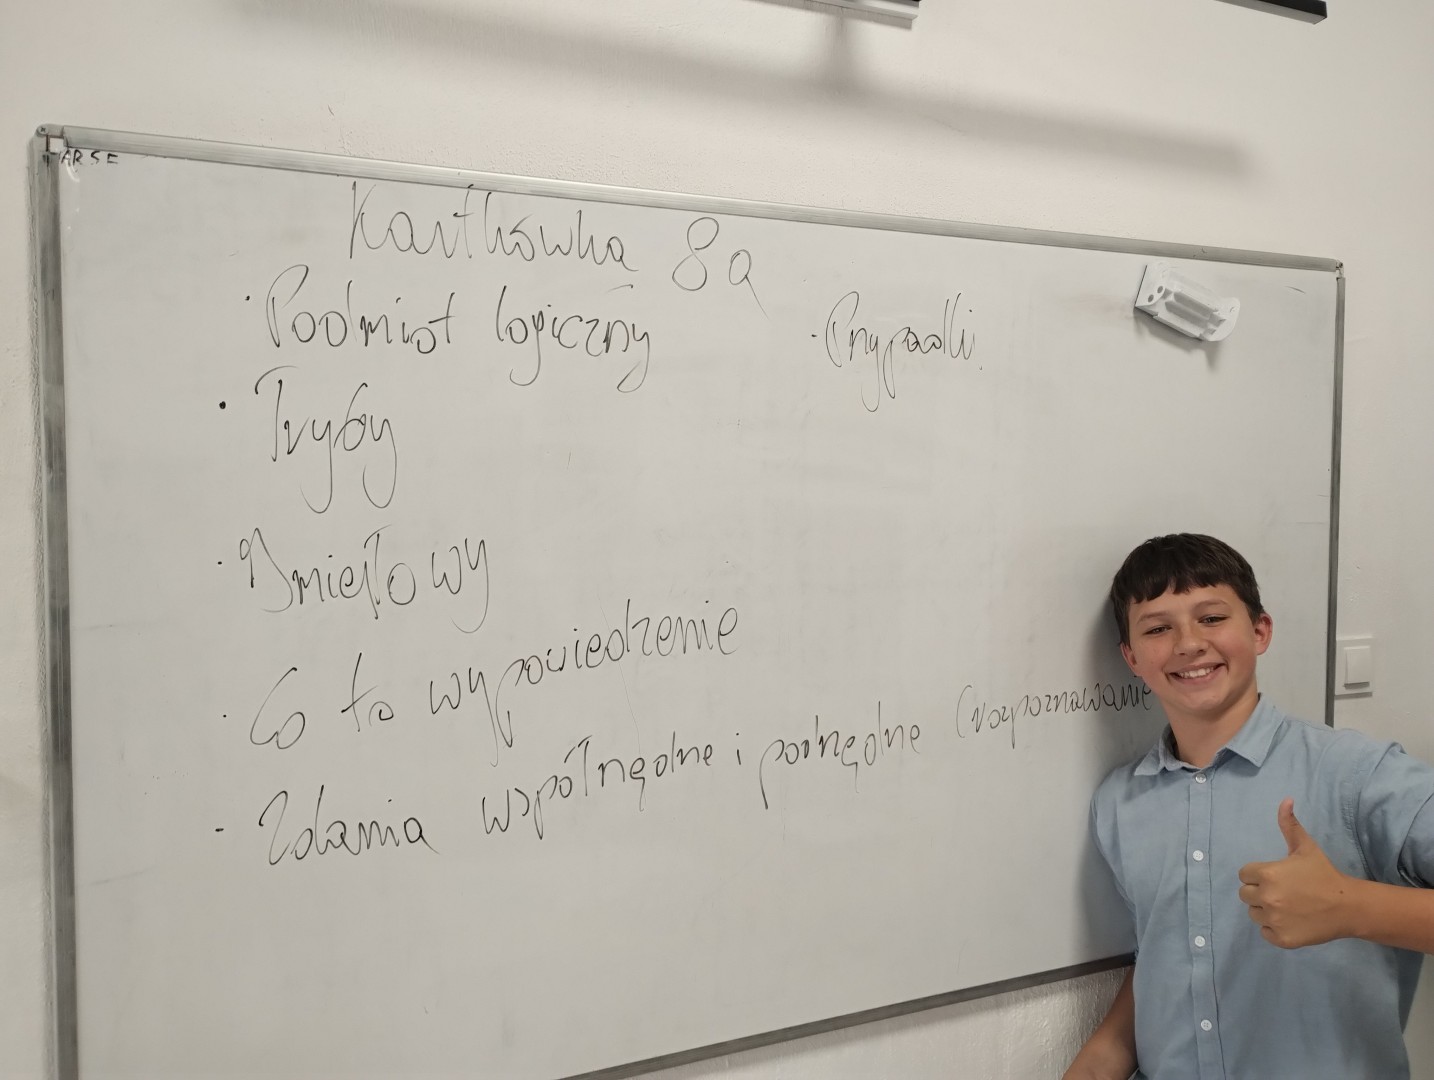 PARSE
Kartkówka 8a
· Podmiot logiczny
· Tryby
· Imiesłowy
· Co to wypowiedzenie
· Zdania współrzędne i podrzędne (rozpoznawanie
· Przypadki